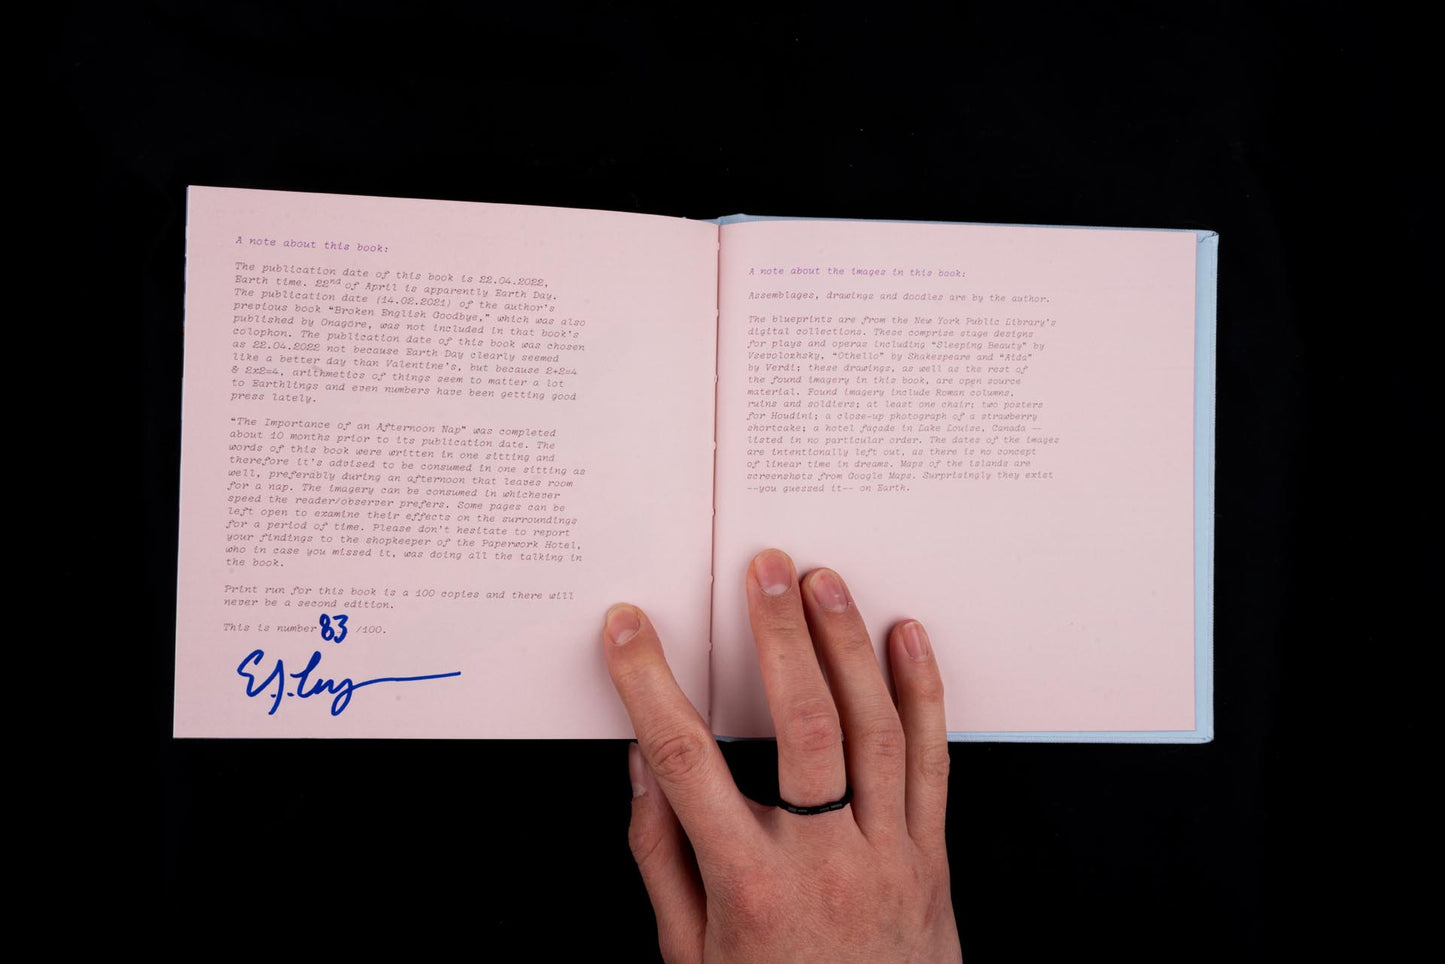 A note about this book:
The publication date of this book is 22.04.2022,
Earth time. 22nd of April is apparently Earth Day.
The publication date (14.02.2021) of the author's
previous book "Broken English Goodbye," which was also
published by Onagöre, was not included in that book's
colophon. The publication date of this book was chosen
as 22.04.2022 not because Earth Day clearly seemed
like a better day than Valentine's, but because 2+2=4
& 2x2=4, arithmetics of things seem to matter a lot
to Earthlings and even numbers have been getting good
press lately.
"The Importance of an Afternoon Nap" was completed
about 10 months prior to its publication date. The
words of this book were written in one sitting and
therefore it's advised to be consumed in one sitting as
well, preferably during an afternoon that leaves room
for a nap. The imagery can be consumed in whichever
speed the reader/observer prefers. Some pages can be
left open to examine their effects on the surroundings
for a period of time. Please don't hesitate to report
your findings to the shopkeeper of the Paperwork Hotel,
who in case you missed it, was doing all the talking in
the book.
Print run for this book is a 100 copies and there will
never be a second edition.
This is number 83 /100.
A note about the images in this book:
Assemblages, drawings and doodles are by the author.
The blueprints are from the New York Public Library's
digital collections. These comprise stage designs
for plays and operas including "Sleeping Beauty" by
Vsevolozhsky, "Othello" by Shakespeare and "Aida"
by Verdi; these drawings, as well as the rest of
the found imagery in this book, are open source
material. Found imagery include Roman columns,
ruins and soldiers; at least one chair; two posters
for Houdini; a close-up photograph of a strawberry
shortcake; a hotel façade in Lake Louise, Canada --
listed in no particular order. The dates of the images
are intentionally left out, as there is no concept
of linear time in dreams. Maps of the islands are
screenshots from Google Maps. Surprisingly they exist
--you guessed it-- on Earth.